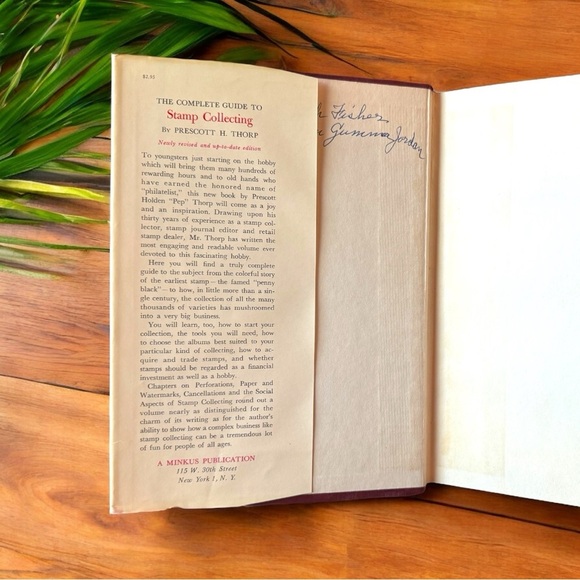 $2.95
THE COMPLETE GUIDE TO
Stamp Collecting
By PRESCOTT H. THORP
Newly revised and up-to-date edition
To youngsters just starting on the hobby
which will bring them many hundreds of
rewarding hours and to old hands who
have earned the honored name of
"philatelist," this new book by Prescott
Holden "Pep" Thorp will come as a joy
and an inspiration. Drawing upon his
thirty years of experience as a stamp col-
lector, stamp journal editor and retail
stamp dealer, Mr. Thorp has written the
most engaging and readable volume ever
devoted to this fascinating hobby.
Here you will find a truly complete
guide to the subject from the colorful story
of the earliest stamp – the famed "penny
black" – to how, in little more than a sin-
gle century, the collection of all the many
thousands of varieties has mushroomed
into a very big business.
You will learn, too, how to start your
collection, the tools you will need, how
to choose the albums best suited to your
particular kind of collecting, how to ac-
quire and trade stamps, and whether
stamps should be regarded as a financial
investment as well as a hobby.
Chapters on Perforations, Paper and
Watermarks, Cancellations and the Social
Aspects of Stamp Collecting round out a
volume nearly as distinguished for the
charm of its writing as for the author's
ability to show how a complex business like
stamp collecting can be a tremendous lot
of fun for people of all ages.
A MINKUS PUBLICATION
115 W. 30th Street
New York 1, N. Y.
h Fisher
Gumma Jordan